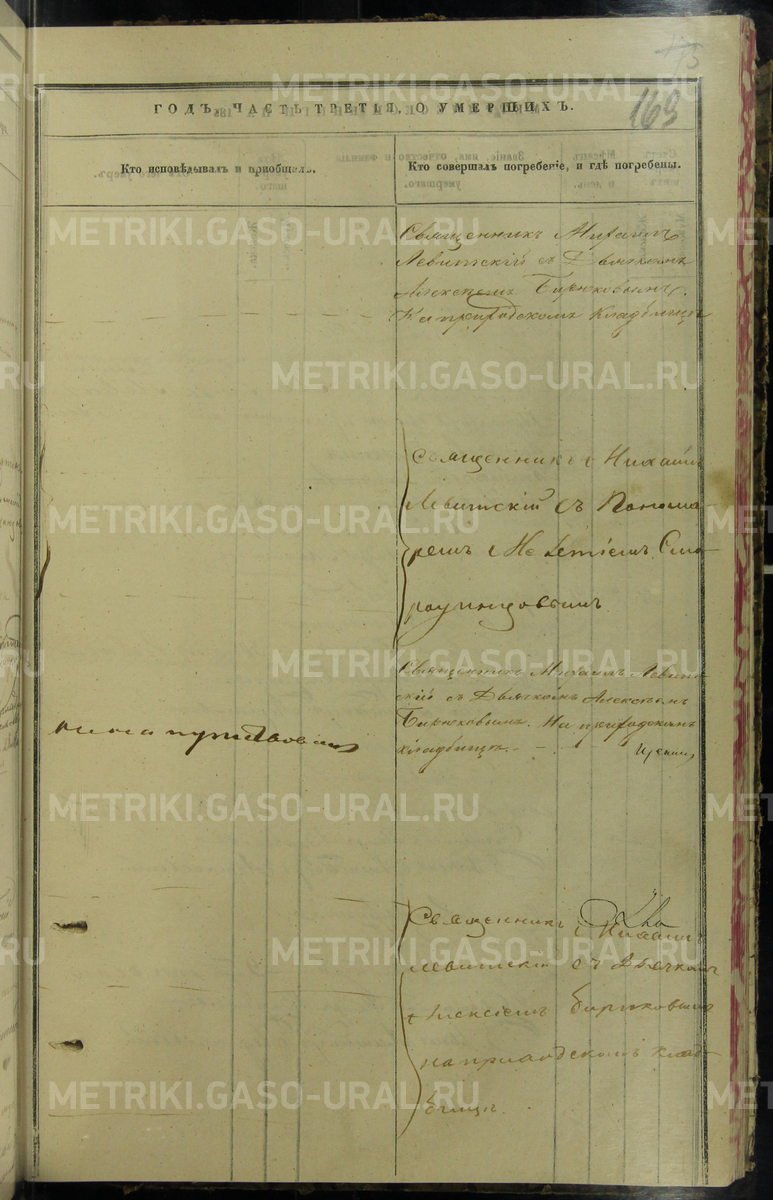 169
ГОДЪ, ЧАСТЬ ТРЕТІЯ, О УМЕРШИХЪ.
Кто исповѣдывалъ и пріобщалъ.
Кто совершалъ погребеніе, и гдѣ погребены.
Священникъ Михаилъ
Левитскій съ Дьячкомъ
Алексѣемъ Бирюковымъ.
На приходскомъ Кладбищѣ
Священникъ Михаилъ
Левитскій съ Понома-
ремъ Сма-
рагдовымъ
Священникъ Михаилъ Левит-
скій съ Дьячкомъ Алексѣемъ
Бирюковымъ. На приходскомъ
кладбищѣ.
Священникъ Михаилъ
Левитскій съ Дьячкомъ
Алексіемъ Бирюковымъ
на приходскомъ клад-
бищѣ.
METRIKI.GASO-URAL.RU